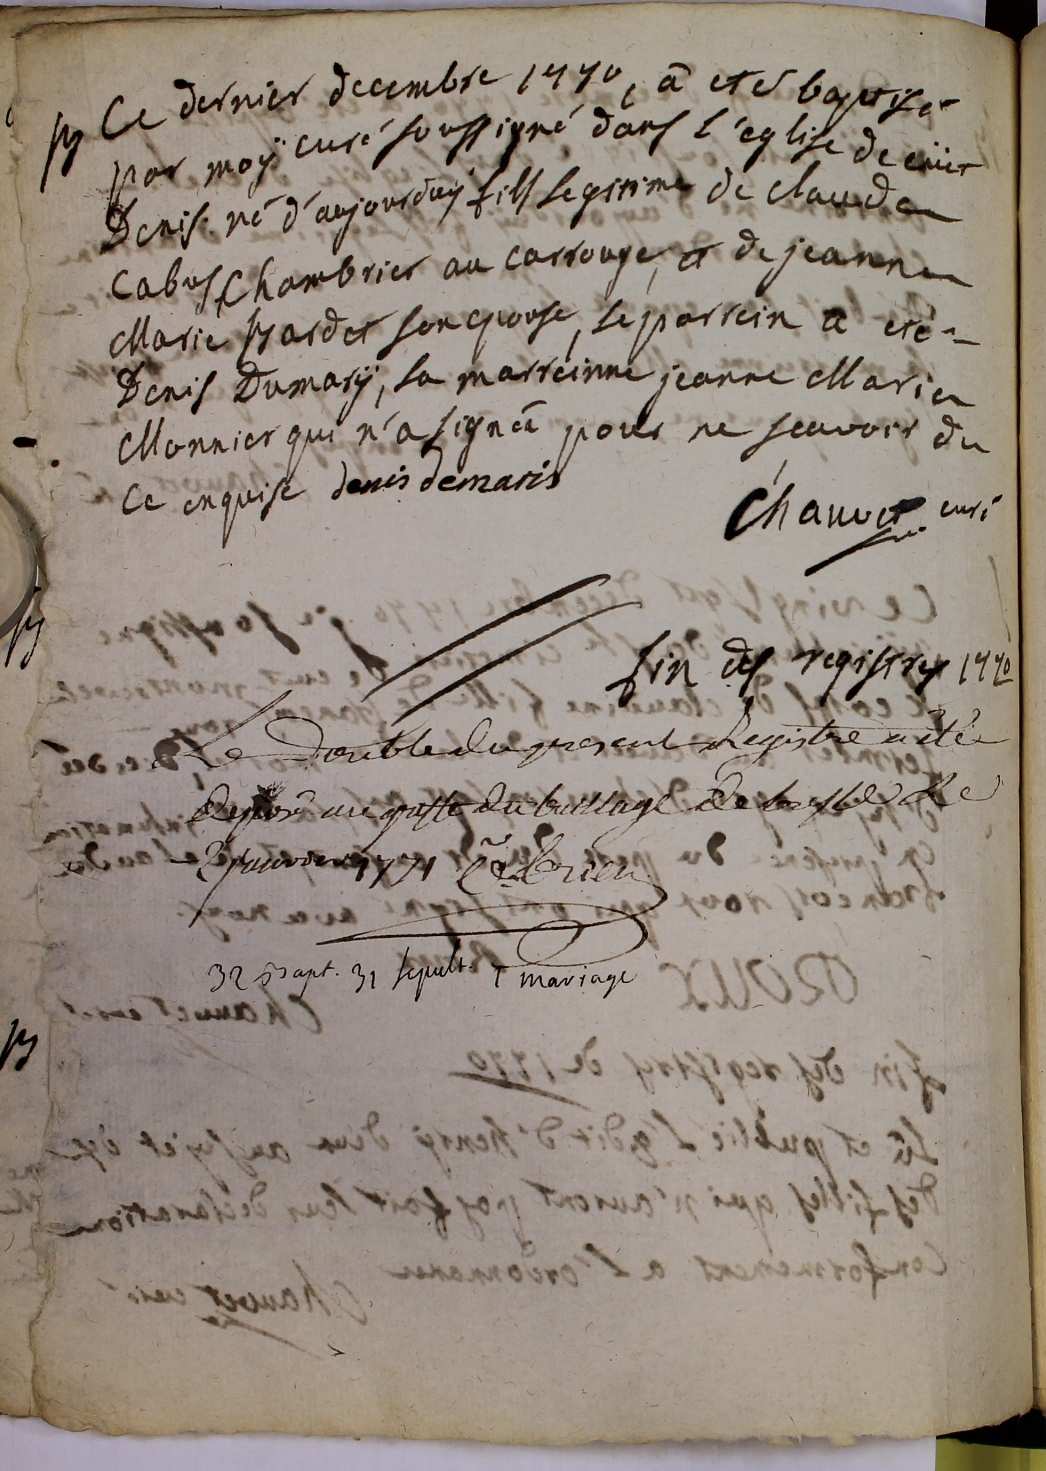 B Ce dernier decembre 1770, a eté baptisé
par moÿ curé soussigné dans l'eglise de cuet
Denis né d'aujourduy fils legitime de claude
Cabus chambrier au carrouge, et de jeanne
Marie Bardet son epouse, le parrein a eté
Denis Dumarÿ, la marreinne jeanne Marie
Monnier qui n'a signéà pour ne scavoir du
Ce enquise denis demaris
Chauvet curé
fin des registres 1770
Le Double du present Registre a été
deposé au greffe du bailliage de bresse le
2 janvier 1771
32 Bapt. 31 sepult. 7 mariage